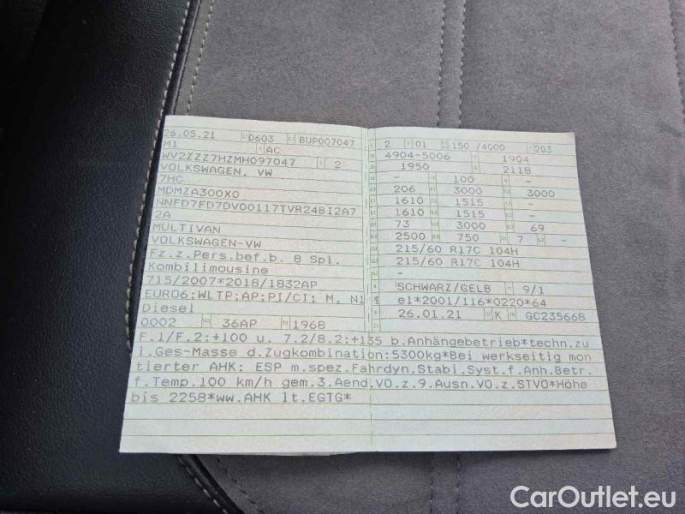 26.05.21 0603 BUP007047
M1 AC
WV2ZZZ7HZMH097047 2
VOLKSWAGEN, VW
7HC
MDMZA300X0
NNFD7FD7DV00117TVR248I2A7
2A
MULTIVAN
VOLKSWAGEN-VW
Fz.z.Pers.bef.b. 8 Spl.
Kombilimousine
715/2007*2018/1832AP
EURO6;WLTP;AP;PI/CI; M, N1
Diesel
0002 36AP 1968
2 01 150 /4000 203
4904-5006 - 1904
1950 2118
- 100 -
206 3000 3000
1610 1515 -
1610 1515 -
73 3000 69
2500 750 7 -
215/60 R17C 104H
215/60 R17C 104H
-
SCHWARZ/GELB - 9/1
e1*2001/116*0220*64
26.01.21 K GC235668
F.1/F.2:+100 u. 7.2/8.2:+135 b.Anhängebetrieb*techn.zu
l.Ges-Masse d.Zugkombination:5300kg*Bei werkseitig mon
tierter AHK: ESP m.spez.Fahrdyn.Stabi.Syst.f.Anh.Betr.
f.Temp.100 km/h gem.3.Aend.VO.z.9.Ausn.VO.z.STVO*Höhe
bis 2258*ww.AHK lt.EGTG*
CarOutlet.eu